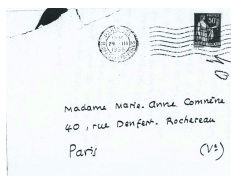 Madame Marie-Anne Comnène
40, rue Denfert-Rochereau
Paris (Ve)